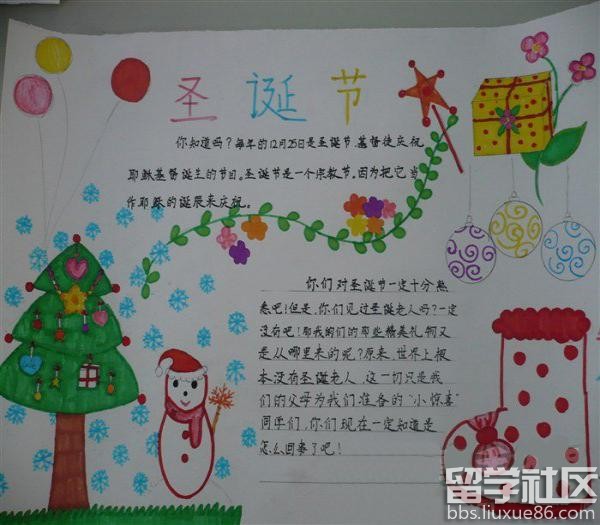 圣诞节
你知道吗？每年的12月25日是圣诞节.基督徒庆祝
耶稣基督诞生的节日。圣诞节是一个宗教节。因为把它当
作耶稣的诞辰来庆祝。
你们对圣诞节一定十分熟
悉吧！但是，你们见过圣诞老人吗？一定
没有吧！那我们的那些精美礼物又
是从哪里来的呢？原来，世界上根
本没有圣诞老人，这一切只是我
们的父母为我们准备的“小惊喜”
同学们，你们现在一定知道是
怎么回事了吧！
留学社区
bbs.liuxue86.com